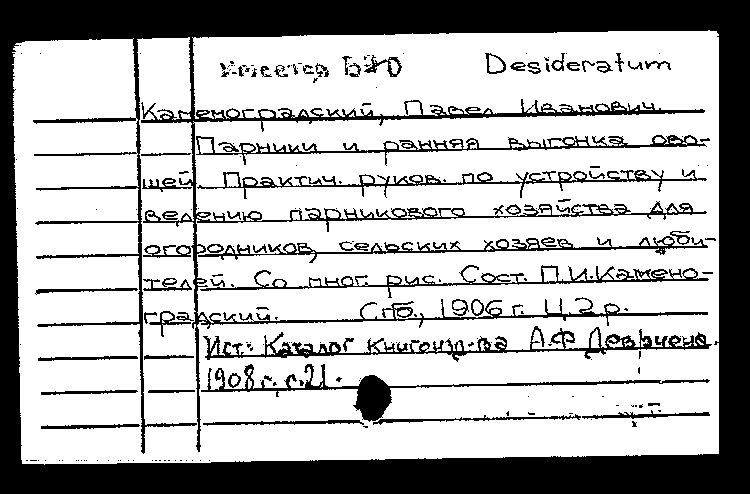 Имеется БАО Desideratum
Каменоградский, Павел Иванович.
Парники и ранняя выгонка ово-
щей. Практич. руков. по устройству и
ведению парникового хозяйства для
огородников, сельских хозяев и люби-
телей. Со мног. рис. Сост. П.И.Камено-
градский. Спб., 1906 г. Ц.2 р.
Ист.: Каталог книгоизд-ва А.Ф Девриена.
1908 г., с.21.